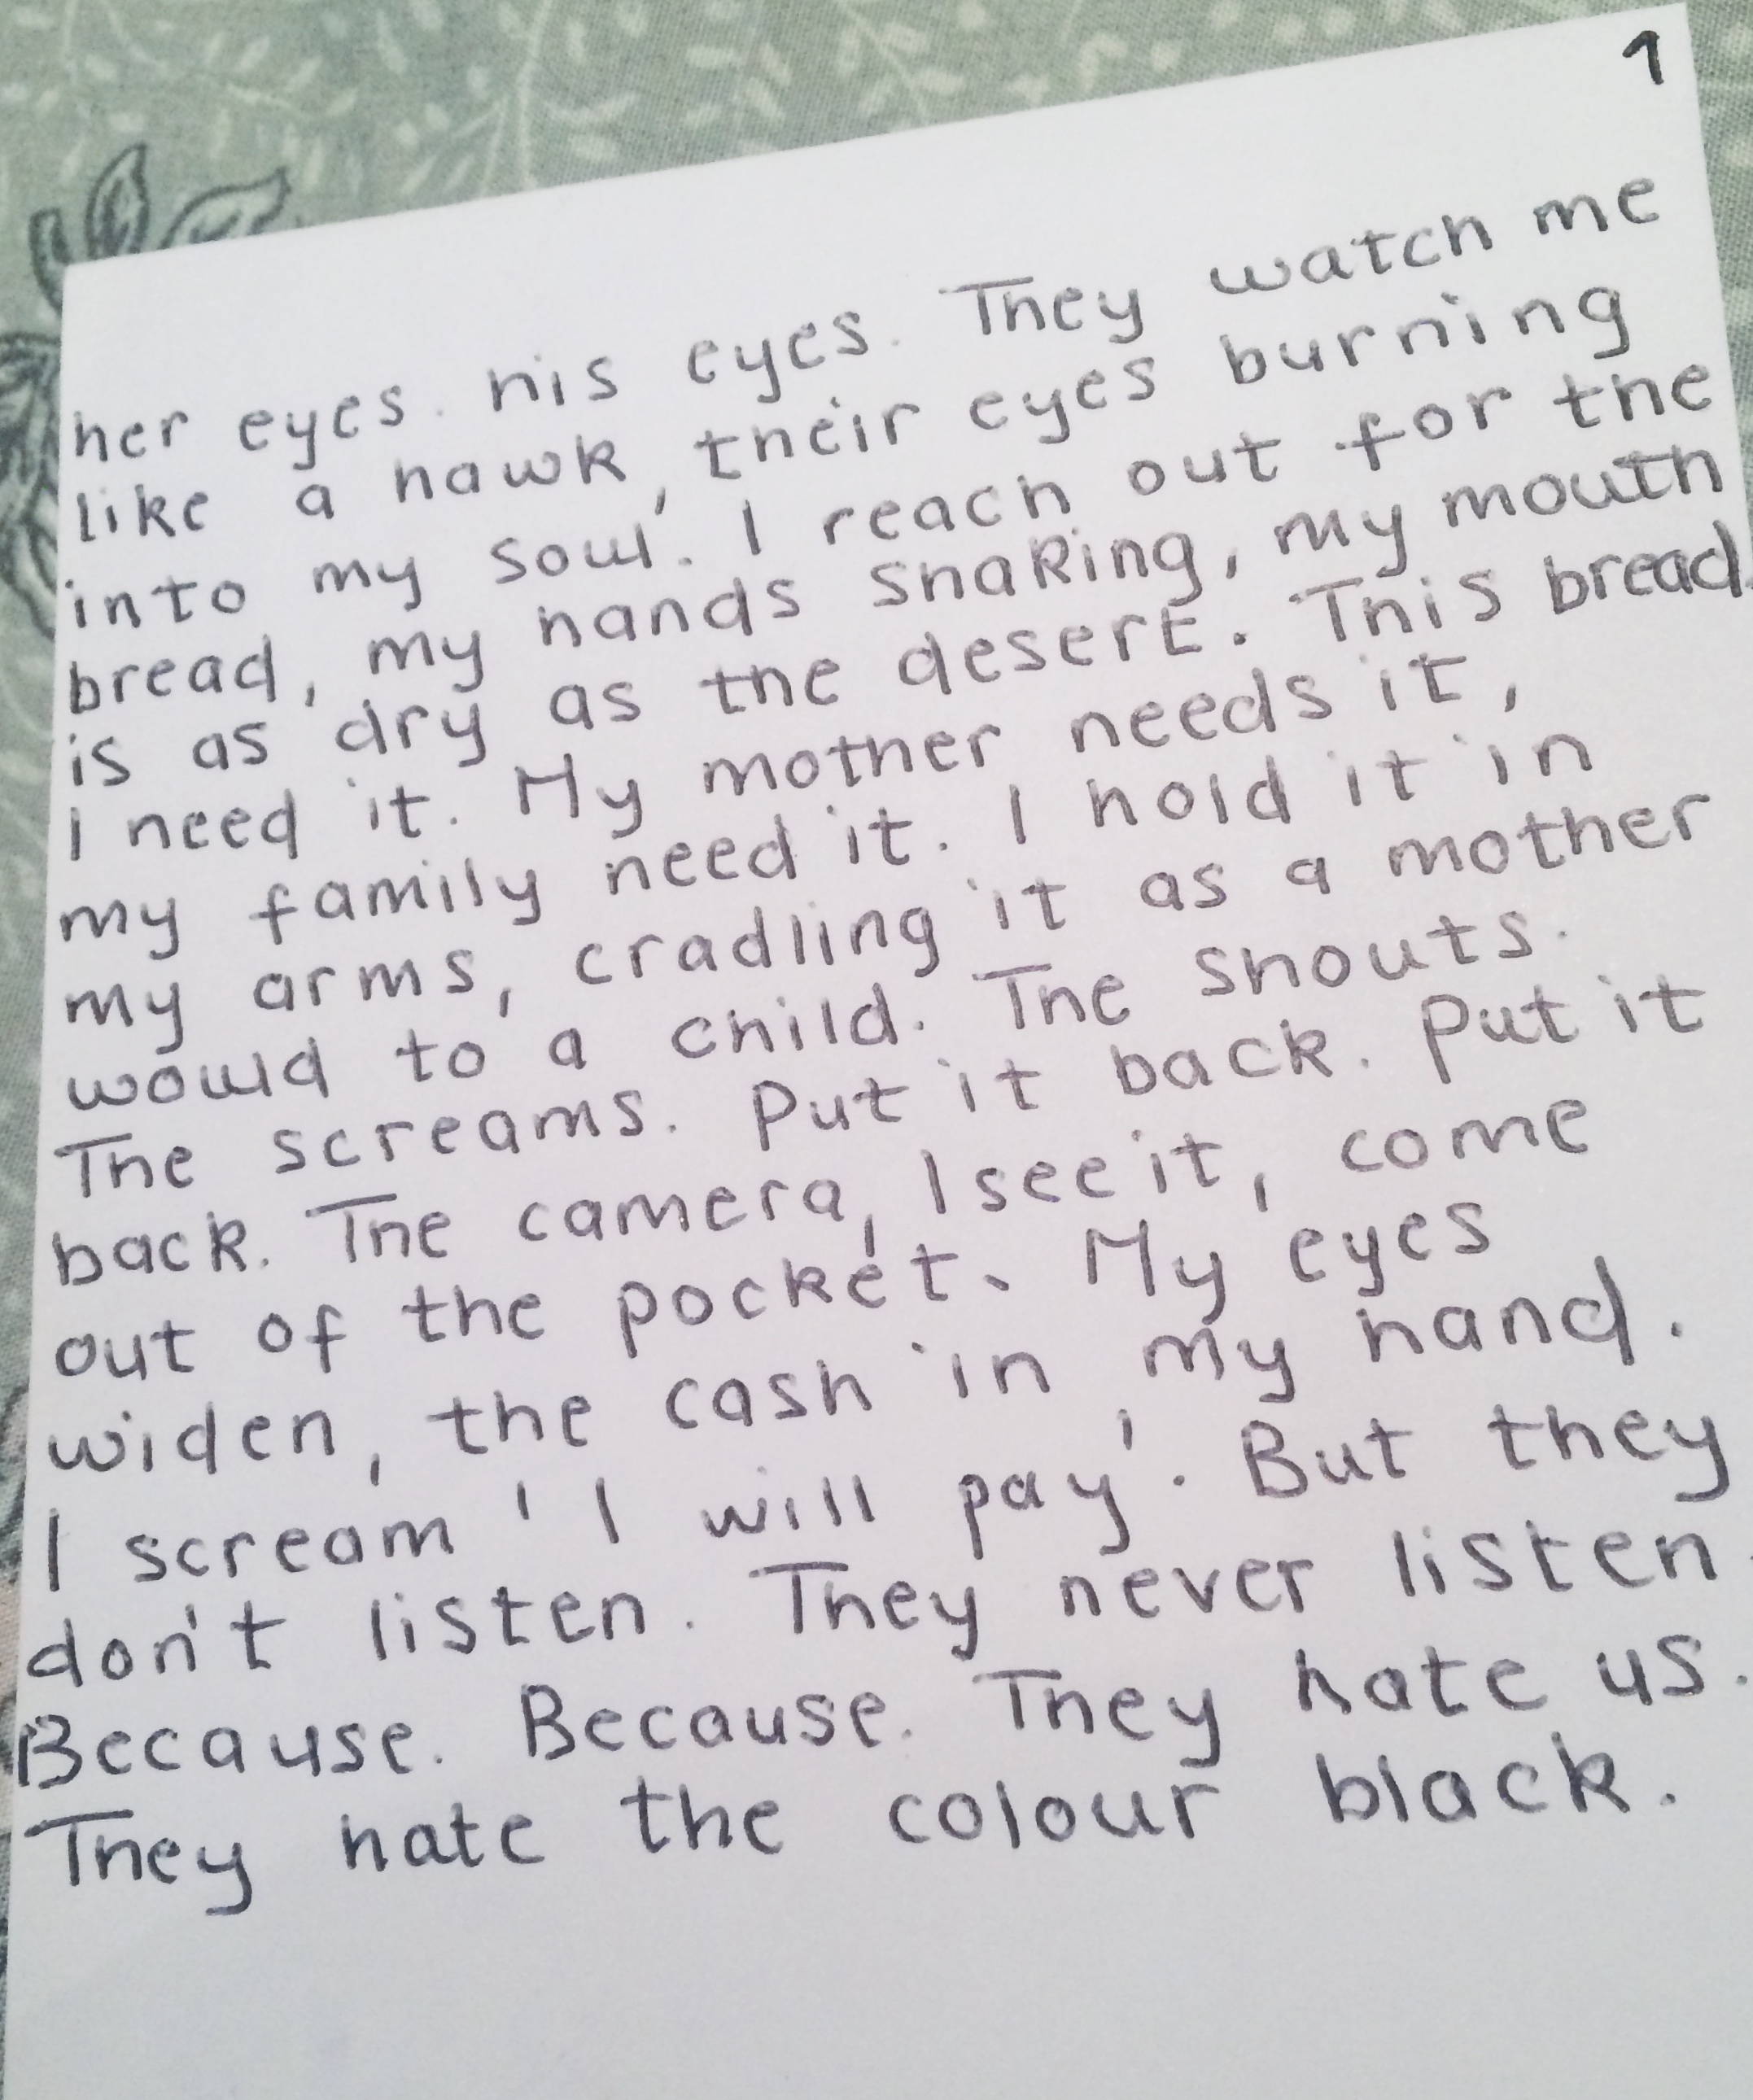 1
her eyes. his eyes. They watch me
like a hawk, their eyes burning
into my soul. I reach out for the
bread, my hands shaking, my mouth
is as dry as the desert. This bread.
I need it. My mother needs it,
my family need it. I hold it in
my arms, cradling it as a mother
would to a child. The shouts.
The screams. Put it back. Put it
back. The camera, I see it, come
out of the pocket. My eyes
widen, the cash in my hand.
I scream 'I will pay'. But they
don't listen. They never listen.
Because. Because. They hate us.
They hate the colour black.